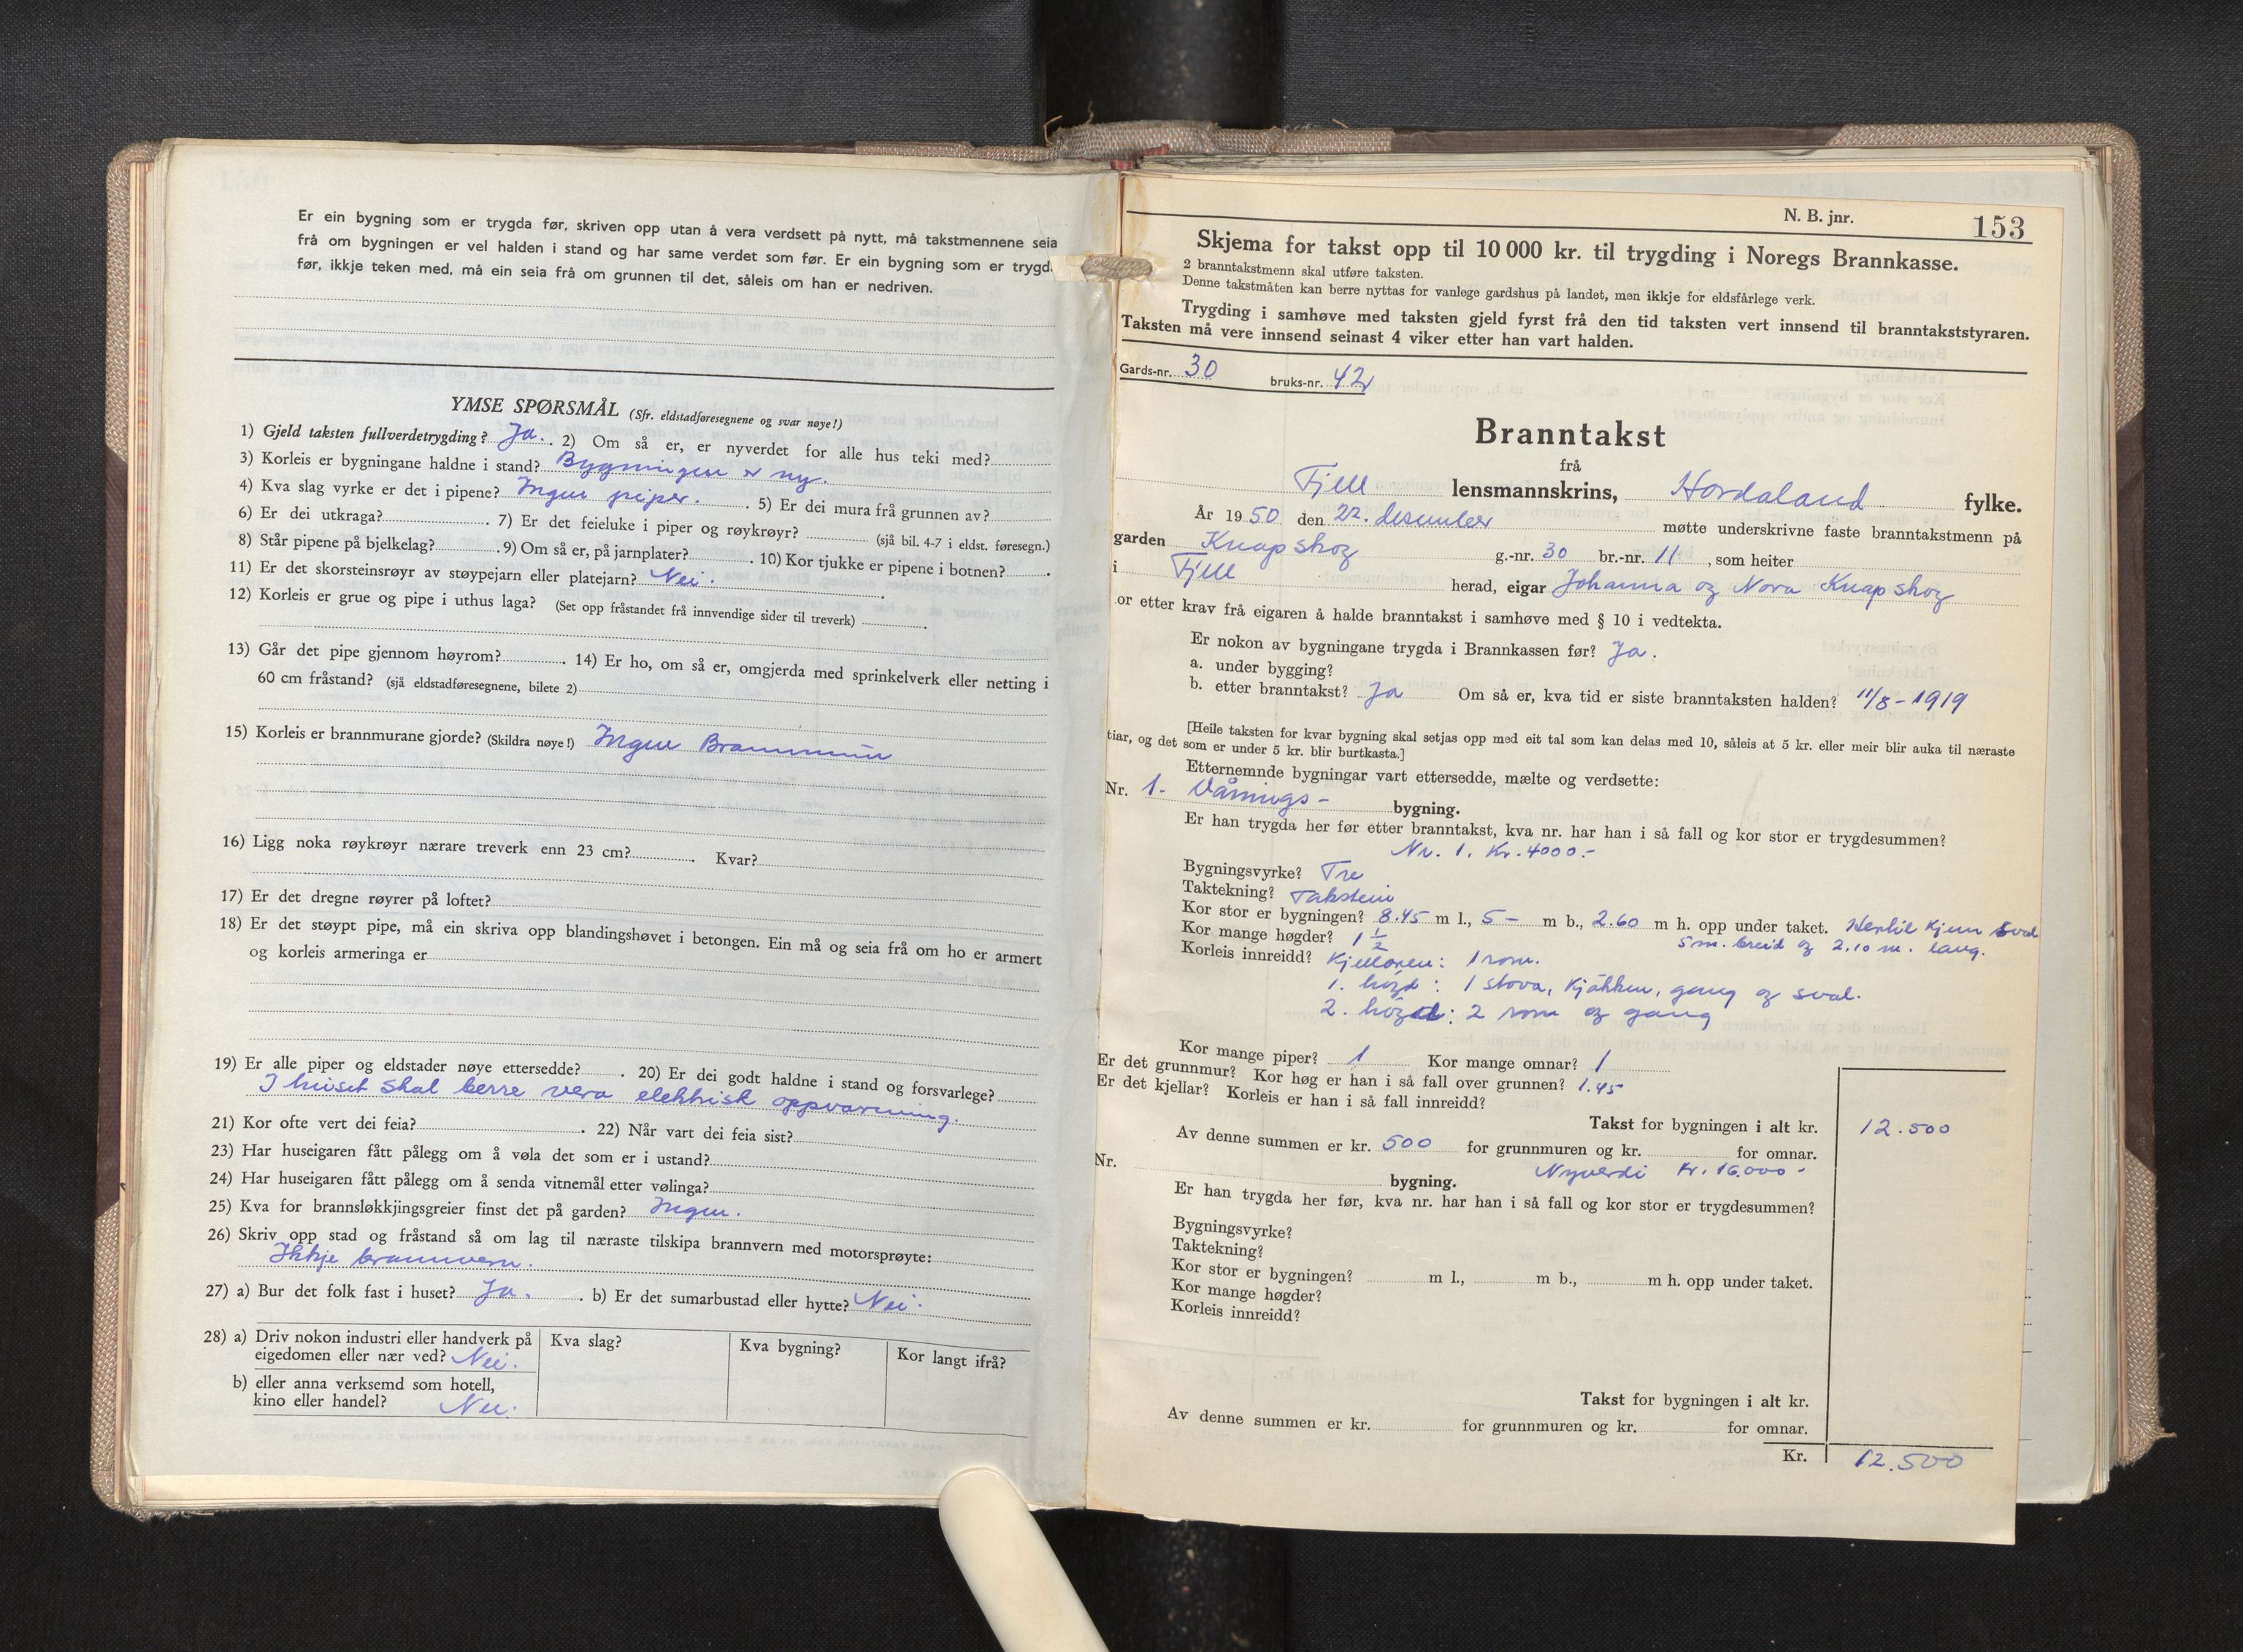 Er ein bygning som er trygda før, skriven opp utan å vera verdsett på nytt, må takstmennene seia
frå om bygningen er vel halden i stand og har same verdet som før. Er ein bygning som er trygd
før, ikkje teken med, må ein seia frå om grunnen til det, såleis om han er nedriven.
YMSE SPØRSMÅL (Sfr. eldstadføresegnene og svar nøye!)
1) Gjeld taksten fullverdetrygding? Ja. 2) Om så er, er nyverdet for alle hus teki med?
3) Korleis er bygningane haldne i stand? Bygningen er ny.
4) Kva slag vyrke er det i pipene? Ingen piper. 5) Er dei mura frå grunnen av?
6) Er dei utkraga? 7) Er det feieluke i piper og røykrøyr? (sjå bil. 4-7 i eldst. føresegn.)
8) Står pipene på bjelkelag? 9) Om så er, på jarnplater? 10) Kor tjukke er pipene i botnen?
11) Er det skorsteinsrøyr av støypejarn eller platejarn? Nei.
12) Korleis er grue og pipe i uthus laga? (Set opp fråstandet frå innvendige sider til treverk)
13) Går det pipe gjennom høyrom? 14) Er ho, om så er, omgjerda med sprinkelverk eller netting i
60 cm fråstand? (sjå eldstadføresegnene, bilete 2)
15) Korleis er brannmurane gjorde? (Skildra nøye!) Ingen Brannmur
16) Ligg noka røykrøyr nærare treverk enn 23 cm? Kvar?
17) Er det dregne røyrer på loftet?
18) Er det støypt pipe, må ein skriva opp blandingshøvet i betongen. Ein må og seia frå om ho er armert
og korleis armeringa er
19) Er alle piper og eldstader nøye ettersedde? 20) Er dei godt haldne i stand og forsvarlege?
I huset skal berre vera elektrisk oppvarming.
21) Kor ofte vert dei feia? 22) Når vart dei feia sist?
23) Har huseigaren fått pålegg om å vøla det som er i ustand?
24) Har huseigaren fått pålegg om å senda vitnemål etter vølinga?
25) Kva for brannsløkkjingsgreier finst det på garden? Ingen.
26) Skriv opp stad og fråstand så om lag til næraste tilskipa brannvern med motorsprøyte:
Ikkje brannvern.
27) a) Bur det folk fast i huset? Ja. b) Er det sumarbustad eller hytte? Nei.
28) a) Driv nokon industri eller handverk på eigedomen eller nær ved? Nei. Kva slag? Kva bygning? Kor langt ifrå?
b) eller anna verksemd som hotell,
kino eller handel? Nei.
N. B. jnr. 153
Skjema for takst opp til 10 000 kr. til trygding i Noregs Brannkasse.
2 branntakstmenn skal utføre taksten.
Denne takstmåten kan berre nyttas for vanlege gardshus på landet, men ikkje for eldsfårlege verk.
Trygding i samhøve med taksten gjeld fyrst frå den tid taksten vert innsend til branntakststyraren.
Taksten må vere innsend seinast 4 viker etter han vart halden.
Gards-nr. 30 bruks-nr. 42
Branntakst
frå
Fjell lensmannskrins, Hordaland fylke.
År 1950 den 22. desember møtte underskrivne faste branntakstmenn på
garden Knapskog g.-nr. 30 br.-nr. 11, som heiter
i Fjell herad, eigar Johanna og Nora Knapskog
or etter krav frå eigaren å halde branntakst i samhøve med § 10 i vedtekta.
Er nokon av bygningane trygda i Brannkassen før? Ja.
a. under bygging?
b. etter branntakst? Ja Om så er, kva tid er siste branntaksten halden? 11/8-1919
[Heile taksten for kvar bygning skal setjas opp med eit tal som kan delas med 10, såleis at 5 kr. eller meir blir auka til næraste
tiar, og det som er under 5 kr. blir burtkasta.]
Etternemnde bygningar vart ettersedde, mælte og verdsette:
Nr. 1. Vånings- bygning.
Er han trygda her før etter branntakst, kva nr. har han i så fall og kor stor er trygdesummen?
Nr. 1. Kr. 4000.-
Bygningsvyrke? Tre
Taktekning? Takstein
Kor stor er bygningen? 8.45 m l., 5- m b., 2.60 m h. opp under taket. sval
Kor mange høgder? 1 1/2 5 m. breid og 2.10 m. lang.
Korleis innreidd? Kjellaren: 1 rom.
1. høgd: 1 stova, kjøkken, gang og sval.
2. høgd: 2 rom og gang
Kor mange piper? 1 Kor mange omnar? 1
Er det grunnmur? Kor høg er han i så fall over grunnen? 1.45
Er det kjellar? Korleis er han i så fall innreidd?
Takst for bygningen i alt kr. 12.500
Av denne summen er kr. 500 for grunnmuren og kr. for omnar.
Nyverdi Kr. 16.000-
Nr. bygning.
Er han trygda her før, kva nr. har han i så fall og kor stor er trygdesummen?
Bygningsvyrke?
Taktekning?
Kor stor er bygningen? m l., m b., m h. opp under taket.
Kor mange høgder?
Korleis innreidd?
Takst for bygningen i alt kr.
Av denne summen er kr. for grunnmuren og kr. for omnar.
Kr. 12.500